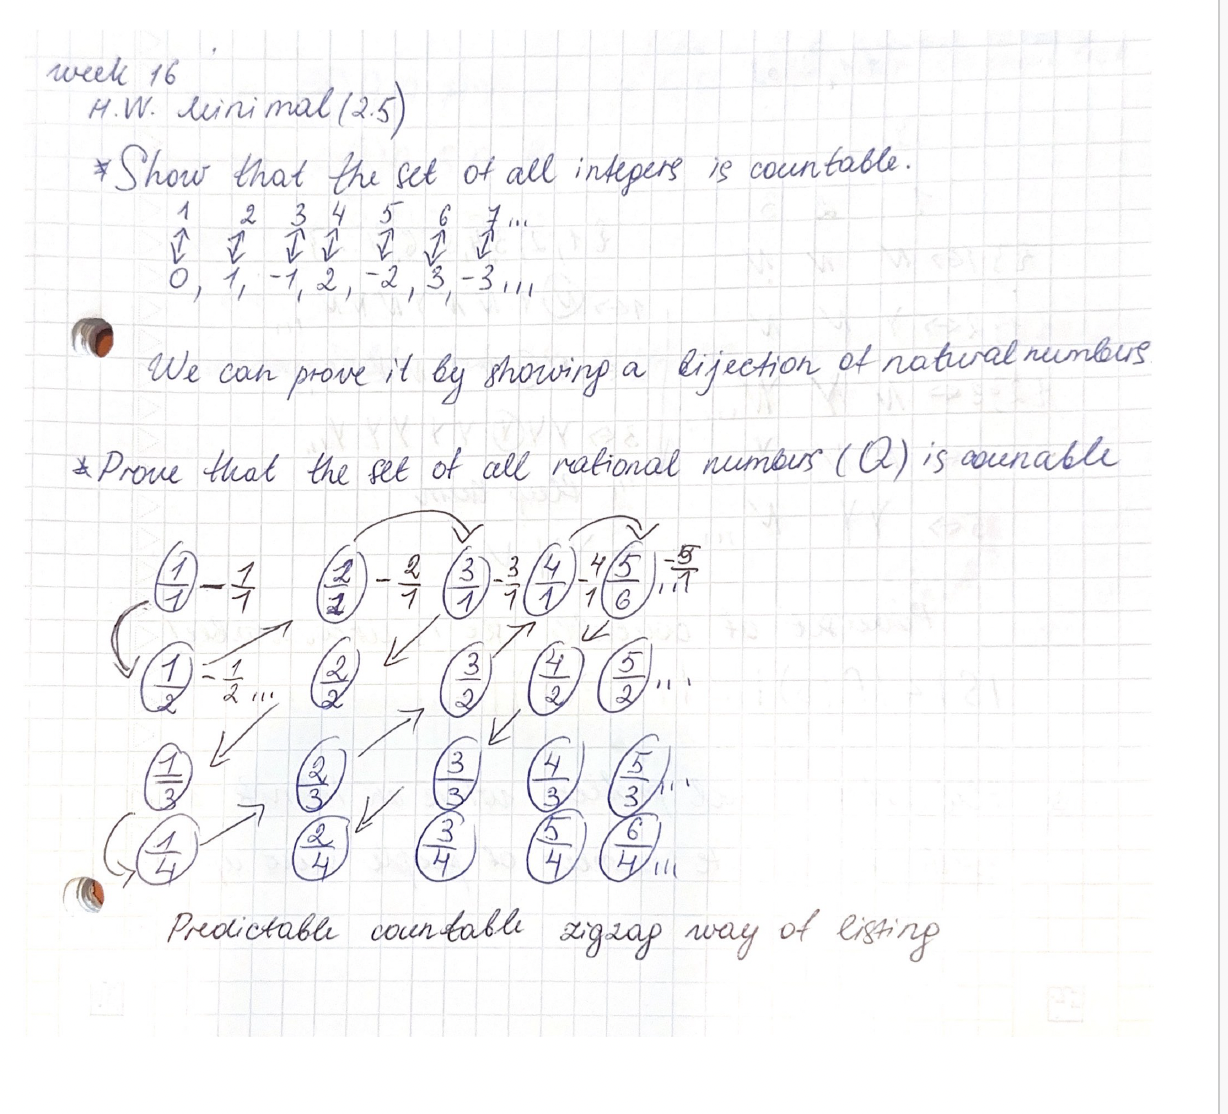 week 16
H.W. Minimal (2.5)
* Show that the set of all integers is countable.
1 2 3 4 5 6 7 ...
↕ ↕ ↕ ↕ ↕ ↕ ↕
0, 1, -1, 2, -2, 3, -3 ...
We can prove it by showing a bijection of natural numbers
* Prove that the set of all rational numbers (Q) is counable
1/1 - 1/1 2/2 - 2/1 3/1 - 3/1 4/1 - 4/1 5/6 ... -5/1
1/2 - 1/2 ... 2/2 3/2 4/2 5/2 ...
1/3 2/3 3/3 4/3 5/3 ...
1/4 2/4 3/4 5/4 6/4 ...
Predictable countable zigzag way of listing